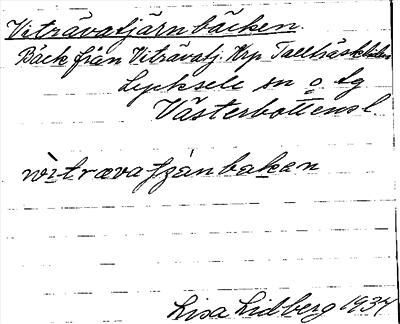 Viträvatjärnbäcken.
Bäck från Viträvatj. Krp Tallträskliden
Lycksele sn o tg
Västerbottens l.
vìtrævatjánbakan
Lisa Lidberg 1934